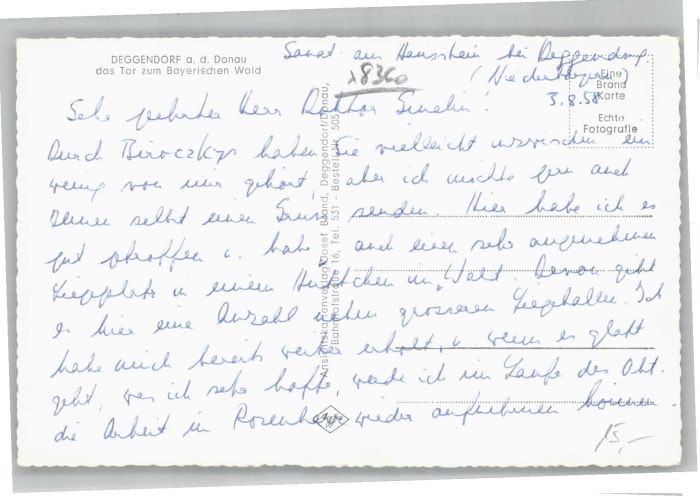 DEGGENDORF a. d. Donau
das Tor zum Bayerischen Wald
Sanat. am Hausstein bei Deggendorf
(Niederbayern)
18360
3.8.58
Eine
Brand
Karte
Echte
Fotografie
Sehr geehrter Herr Doktor
Durch Biroczkys haben Sie vielleicht inzwischen ein
wenig von mir gehört, aber ich möchte gern auch
Ihnen selbst einen Gruss senden. Hier habe ich es
gut getroffen u. habe auch einen sehr angenehmen
Liegeplatz in einem Hüttchen im Wald. Davon gibt
es hier eine Anzahl neben grösseren Liegehallen. Ich
habe mich bereits weiter erholt, u wenn es glatt
geht, was ich sehr hoffe, werde ich im Laufe des Okt.
die Arbeit in Rosenheim wieder aufnehmen können.
Ansichtskartenverlag Josef Brand, Deggendorf/Donau,
Bahnhofstraße 16, Tel. 531 - Bestell-Nr. 505
15,-